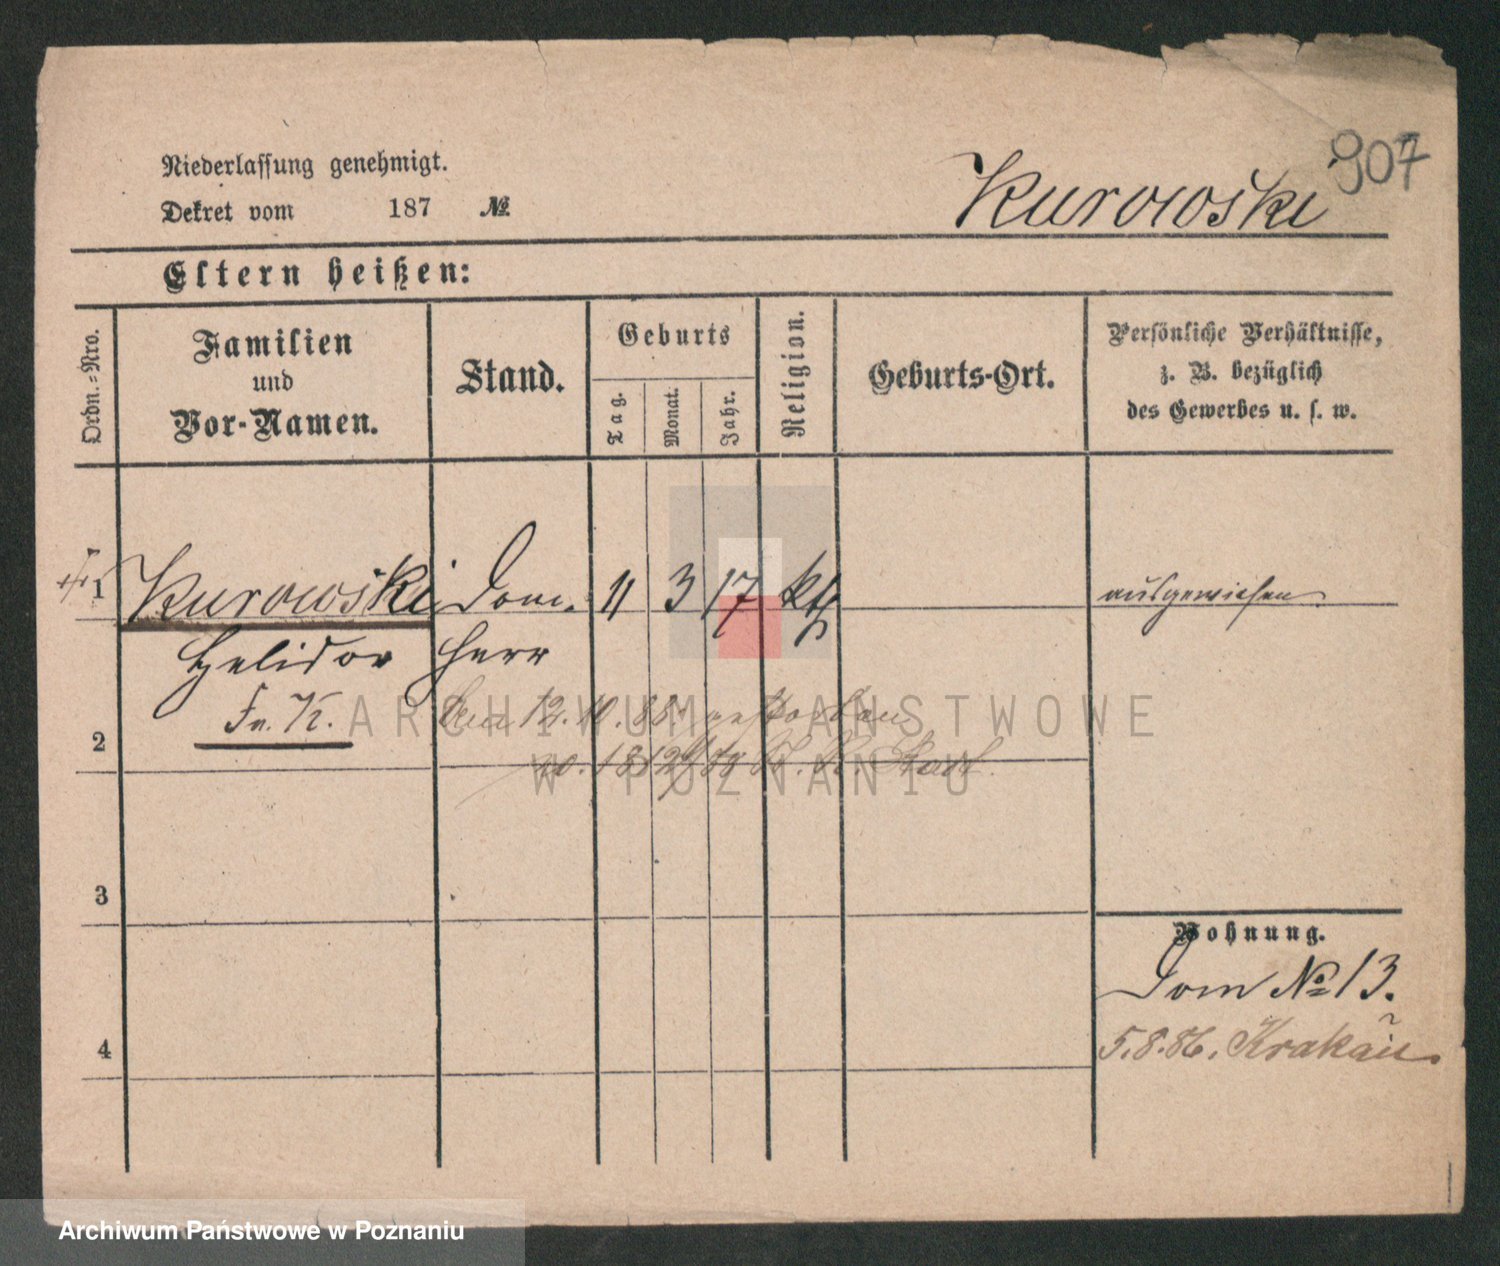 907
Niederlassung genehmigt.
Dekret vom 187 №
Kurowski
Eltern heißen:
Ordn.-Nro.
Familien und Vor-Namen.
Stand.
Geburts
Tag.
Monat.
Jahr.
Religion.
Geburts-Ort.
Persönliche Verhältnisse,
z. B. bezüglich
des Gewerbes u. s. w.
1 Kurowski Dom. 11 3 17 kth ausgewiesen
Helidor Herr
Fr. K.
12. 10. 88. gestorben
2
3
Wohnung.
Dom № 13.
4
5.8.86. Krakau.
ARCHIWUM PAŃSTWOWE
W POZNANIU
Archiwum Państwowe w Poznaniu